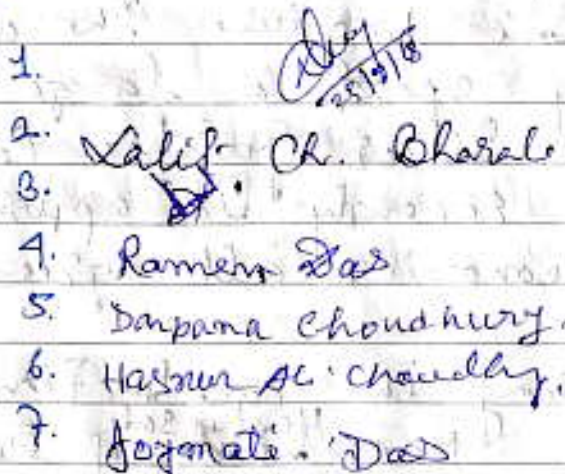 1.
25/9/18
2. Lalit Ch. Bharali
3.
4. Ramen Das
5. Darpana Choudhury.
6. Hasnur Ali Choudhy.
7. Joymati. Das